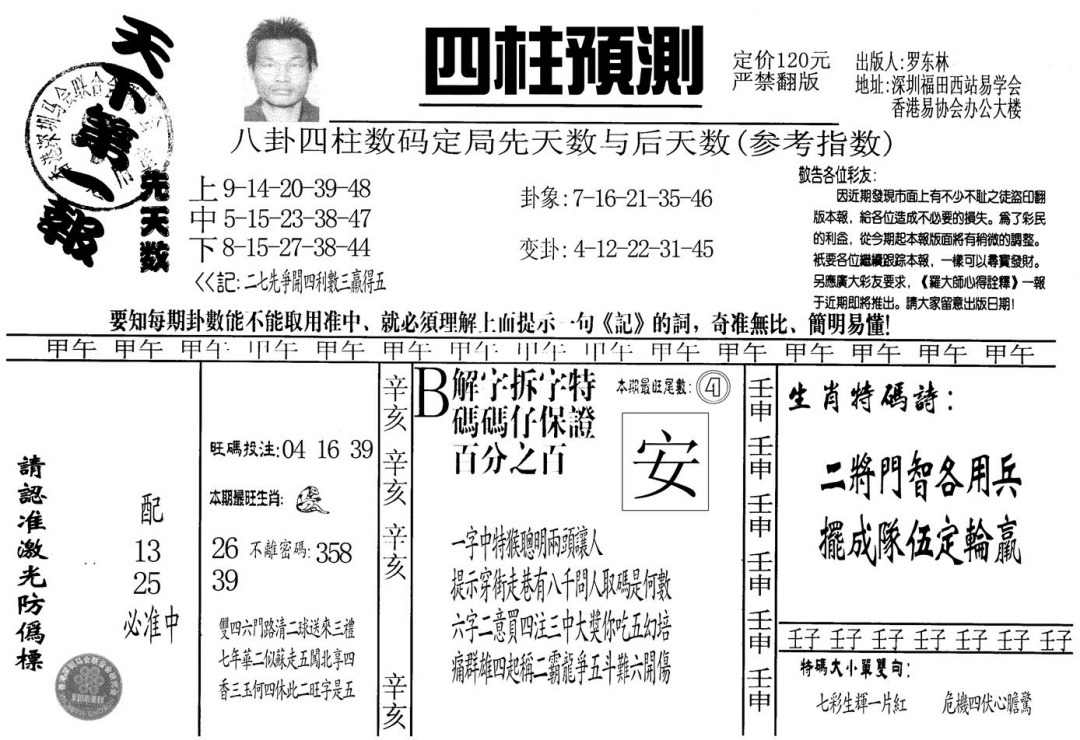 天下第一報
四柱預測
定价120元
严禁翻版
出版人:罗东林
地址:深圳福田西站易学会
香港易协会办公大楼
八卦四柱数码定局先天数与后天数(参考指数)
先天数
上9-14-20-39-48
中5-15-23-38-47
下8-15-27-38-44
<<記:二七先爭開四利數三贏得五
卦象:7-16-21-35-46
变卦:4-12-22-31-45
敬告各位彩友:
因近期發現市面上有不少不恥之徒盜印翻
版本報,給各位造成不必要的損失。爲了彩民
的利益,從今期起本報版面將有稍微的調整。
衹要各位繼續跟踪本報,一樣可以尋寶發財。
另應廣大彩友要求,《羅大師心得詮釋》一報
于近期即將推出。請大家留意出版日期!
要知每期卦數能不能取用准中、就必須理解上面提示一句《記》的詞,奇准無比、簡明易懂!
甲午 甲午 甲午 甲午 甲午 甲午 甲午 甲午 甲午 甲午 甲午 甲午 甲午 甲午 甲午
請認准激光防僞標
配
13
25
必准中
旺碼投注:04 16 39
本期最旺生肖:
26 不離密碼:358
39
雙四六門路清二球送來三禮
七年華二似蘇走五闖北享四
香三玉何四休此二旺字是五
辛亥 辛亥 辛亥 辛亥
B解字拆字特
碼碼仔保證
百分之百
本期最旺尾數:④
安
一字中特猴聰明兩頭讓人
提示穿街走巷有八千問人取碼是何數
六字二意買四注三中大獎你吃五幻培
痛群雄四起稱二霸龍爭五斗難六開傷
壬申 壬申 壬申 壬申 壬申 壬申
生肖特碼詩:
二將門智各用兵
擺成隊伍定輪贏
壬子 壬子 壬子 壬子 壬子 壬子 壬子
特碼大小單雙句:
七彩生輝一片紅 危機四伏心膽驚